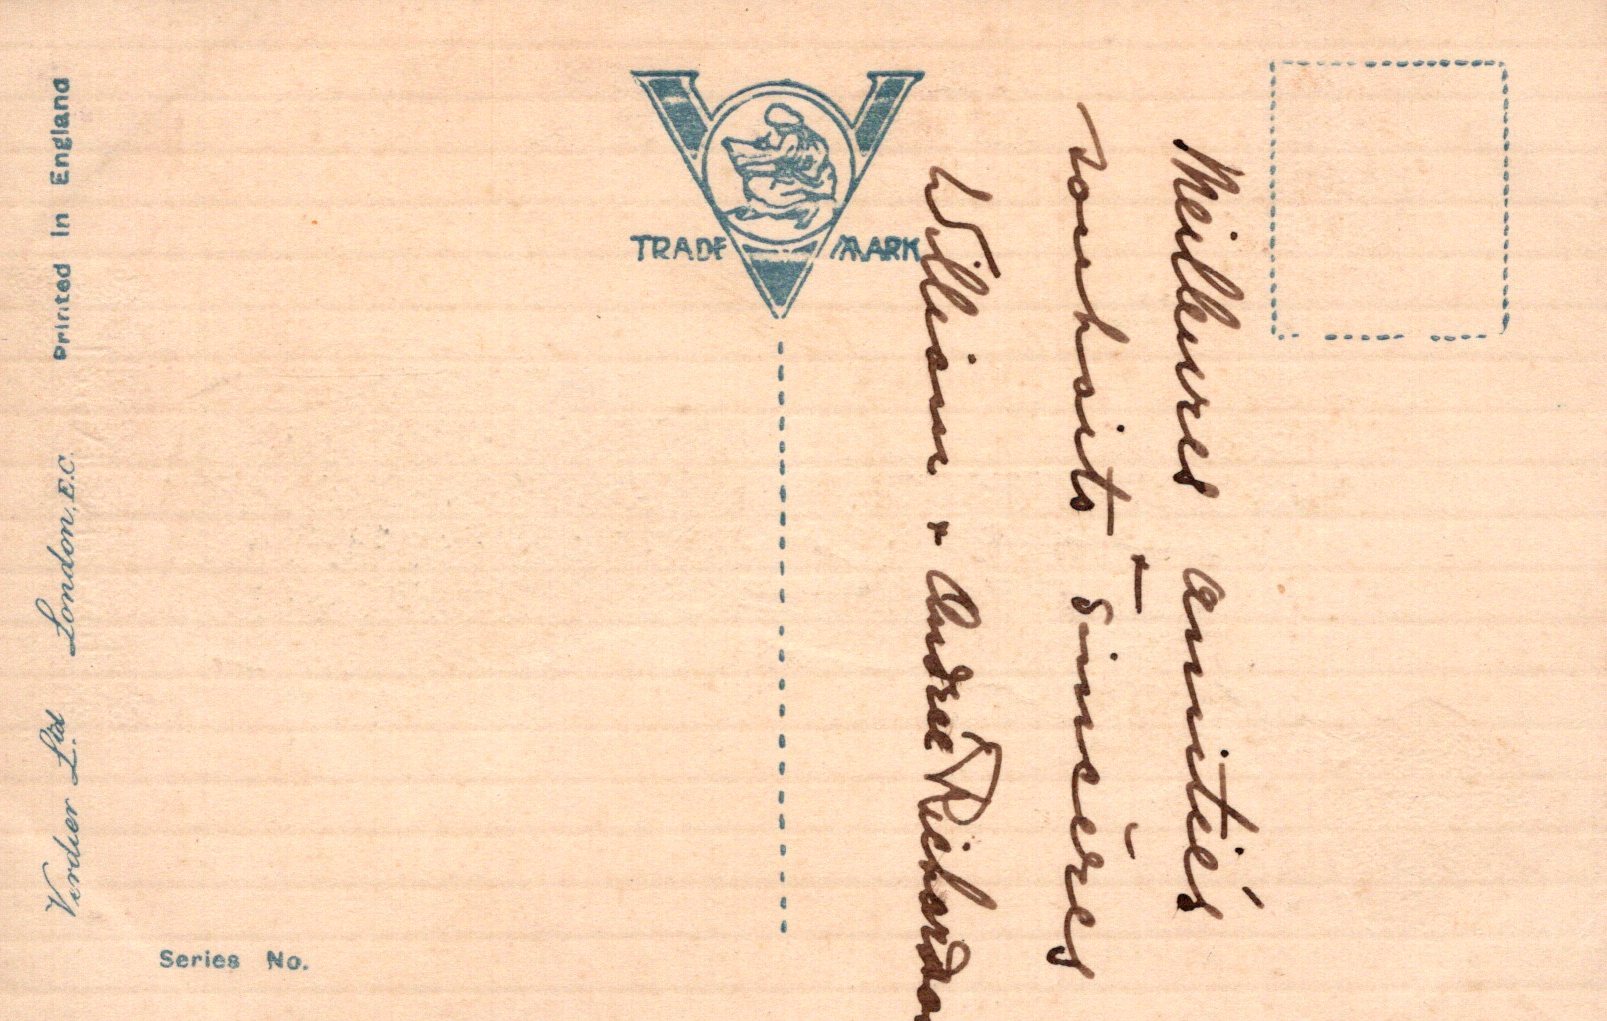 Printed in England
Verdier Ltd. London, E.C.
Series No.
TRADE MARK
Meilleures amitiés
souhaits sincères
William + Andrée Richardso